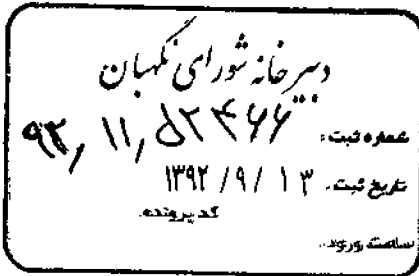 دبیرخانه شورای نگهبان
شماره ثبت: ۹۲/۱۱/۵۲۴۶۶
تاریخ ثبت: ۱۳۹۲/۹/۱۳
کد پرونده:
ساعت ورود: